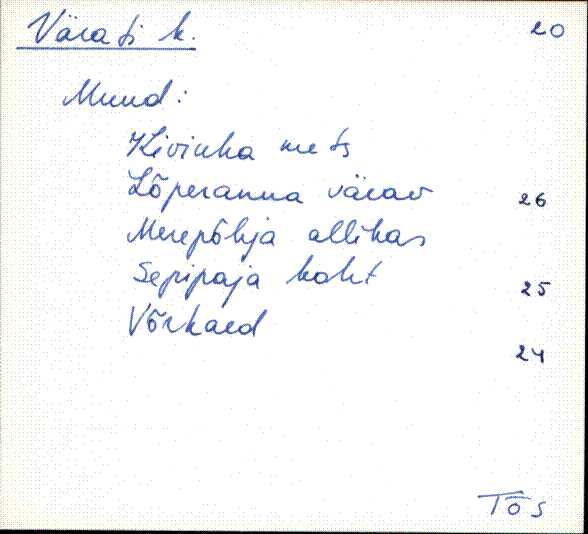 Värati k. 20
Muud:
Kivinha mets
Lõperanna värav 26
Merepõhja allikas
Sepipaja koht 25
Võrkaed
24
Tõs